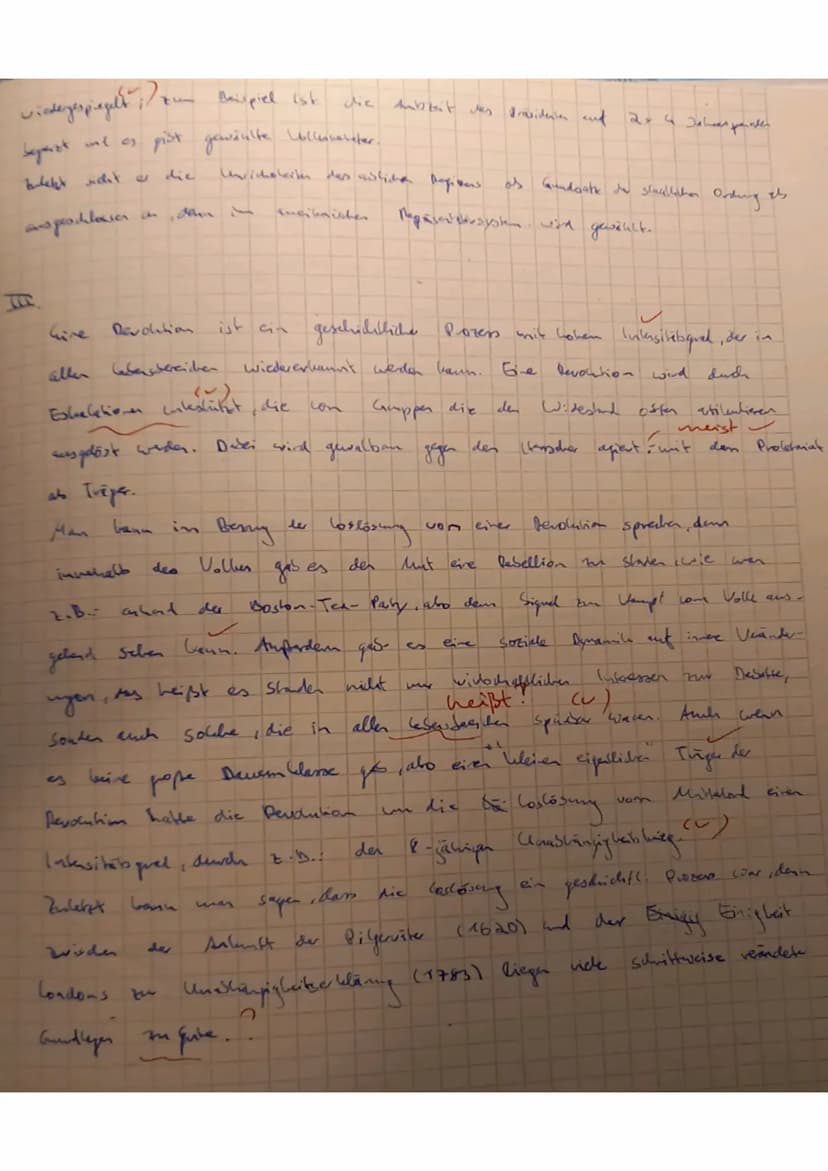 wiedergespiegelt; (✓) zum Beispiel ist die Amtszeit des Präsidenten auf 2x 4 Jahresperioden
begrenzt und es gibt gewählte Volksvertreter.
Zuletzt sieht er die des Regimes als Grundsatz der staatlichen Ordnung als
ausgeschlossen an, denn im amerikanischen Repräsentativsystem wird gewählt.
III.
Eine Revolution ist ein geschichtlicher Prozess mit hohem Intensitätsgrad, der in
allen Lebensbereichen wiedererkannt werden kann. Eine Revolution wird durch
Eskalationen unterstützt, die von Gruppen die den Widerstand offen artikulieren
meist
ausgelöst werden. Dabei wird gewaltsam gegen den Herrscher agiert mit dem Proletariat
als Träger.
Man kann in Bezug der Loslösung von einer Revolution sprechen, denn
innerhalb des Volkes gab es den Mut eine Rebellion zu starten, wie man
z.B.: anhand der Boston-Tea-Party, also dem Signal zum Kampf vom Volk aus-
gehend sehen kann. Außerdem gab es eine soziale Dynamik auf innere Veränder-
ungen, das heißt es standen nicht nur wirtschaftlichen Interessen zur Debatte,
heißt? (✓)
sondern auch solche, die in allen Lebensbereichen spürbar waren. Auch wenn
es keine große Bauernklasse gab, also einen "kleinen eigentlichen" Träger der
Revolution hatte die Revolution um die Loslösung vom Mutterland einen
Intensitätsgrad, durch z.B.: den 8-jährigen Unabhängigkeitskrieg. (✓)
Zuletzt kann man sagen, dass die Loslösung ein geschichtl. Prozess war, denn
zwischen der Ankunft der Pilgerväter (1620) und der Einigkeit
Londons zur Unabhängigkeitserklärung (1783) liegen viele schrittweise veränderte
Grundlagen zu Grunde. ?